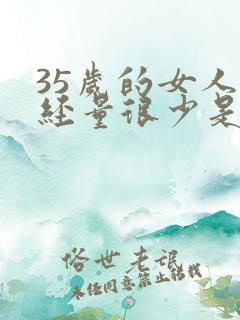 35岁的女人
经量很少是
俗世老讯
未经同意禁止转载